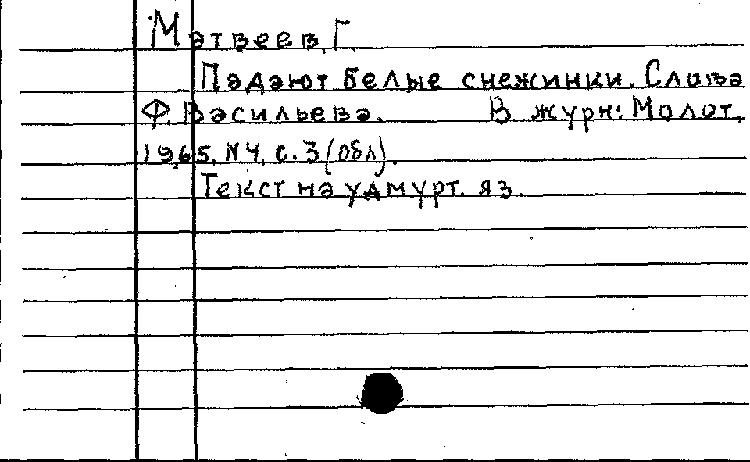 Матвеев, Г.
Падают белые снежинки. Слова
Ф. Васильева. В журн: Молот,
1965, N 4, с. 3 (обл).
Текст на удмурт. яз.